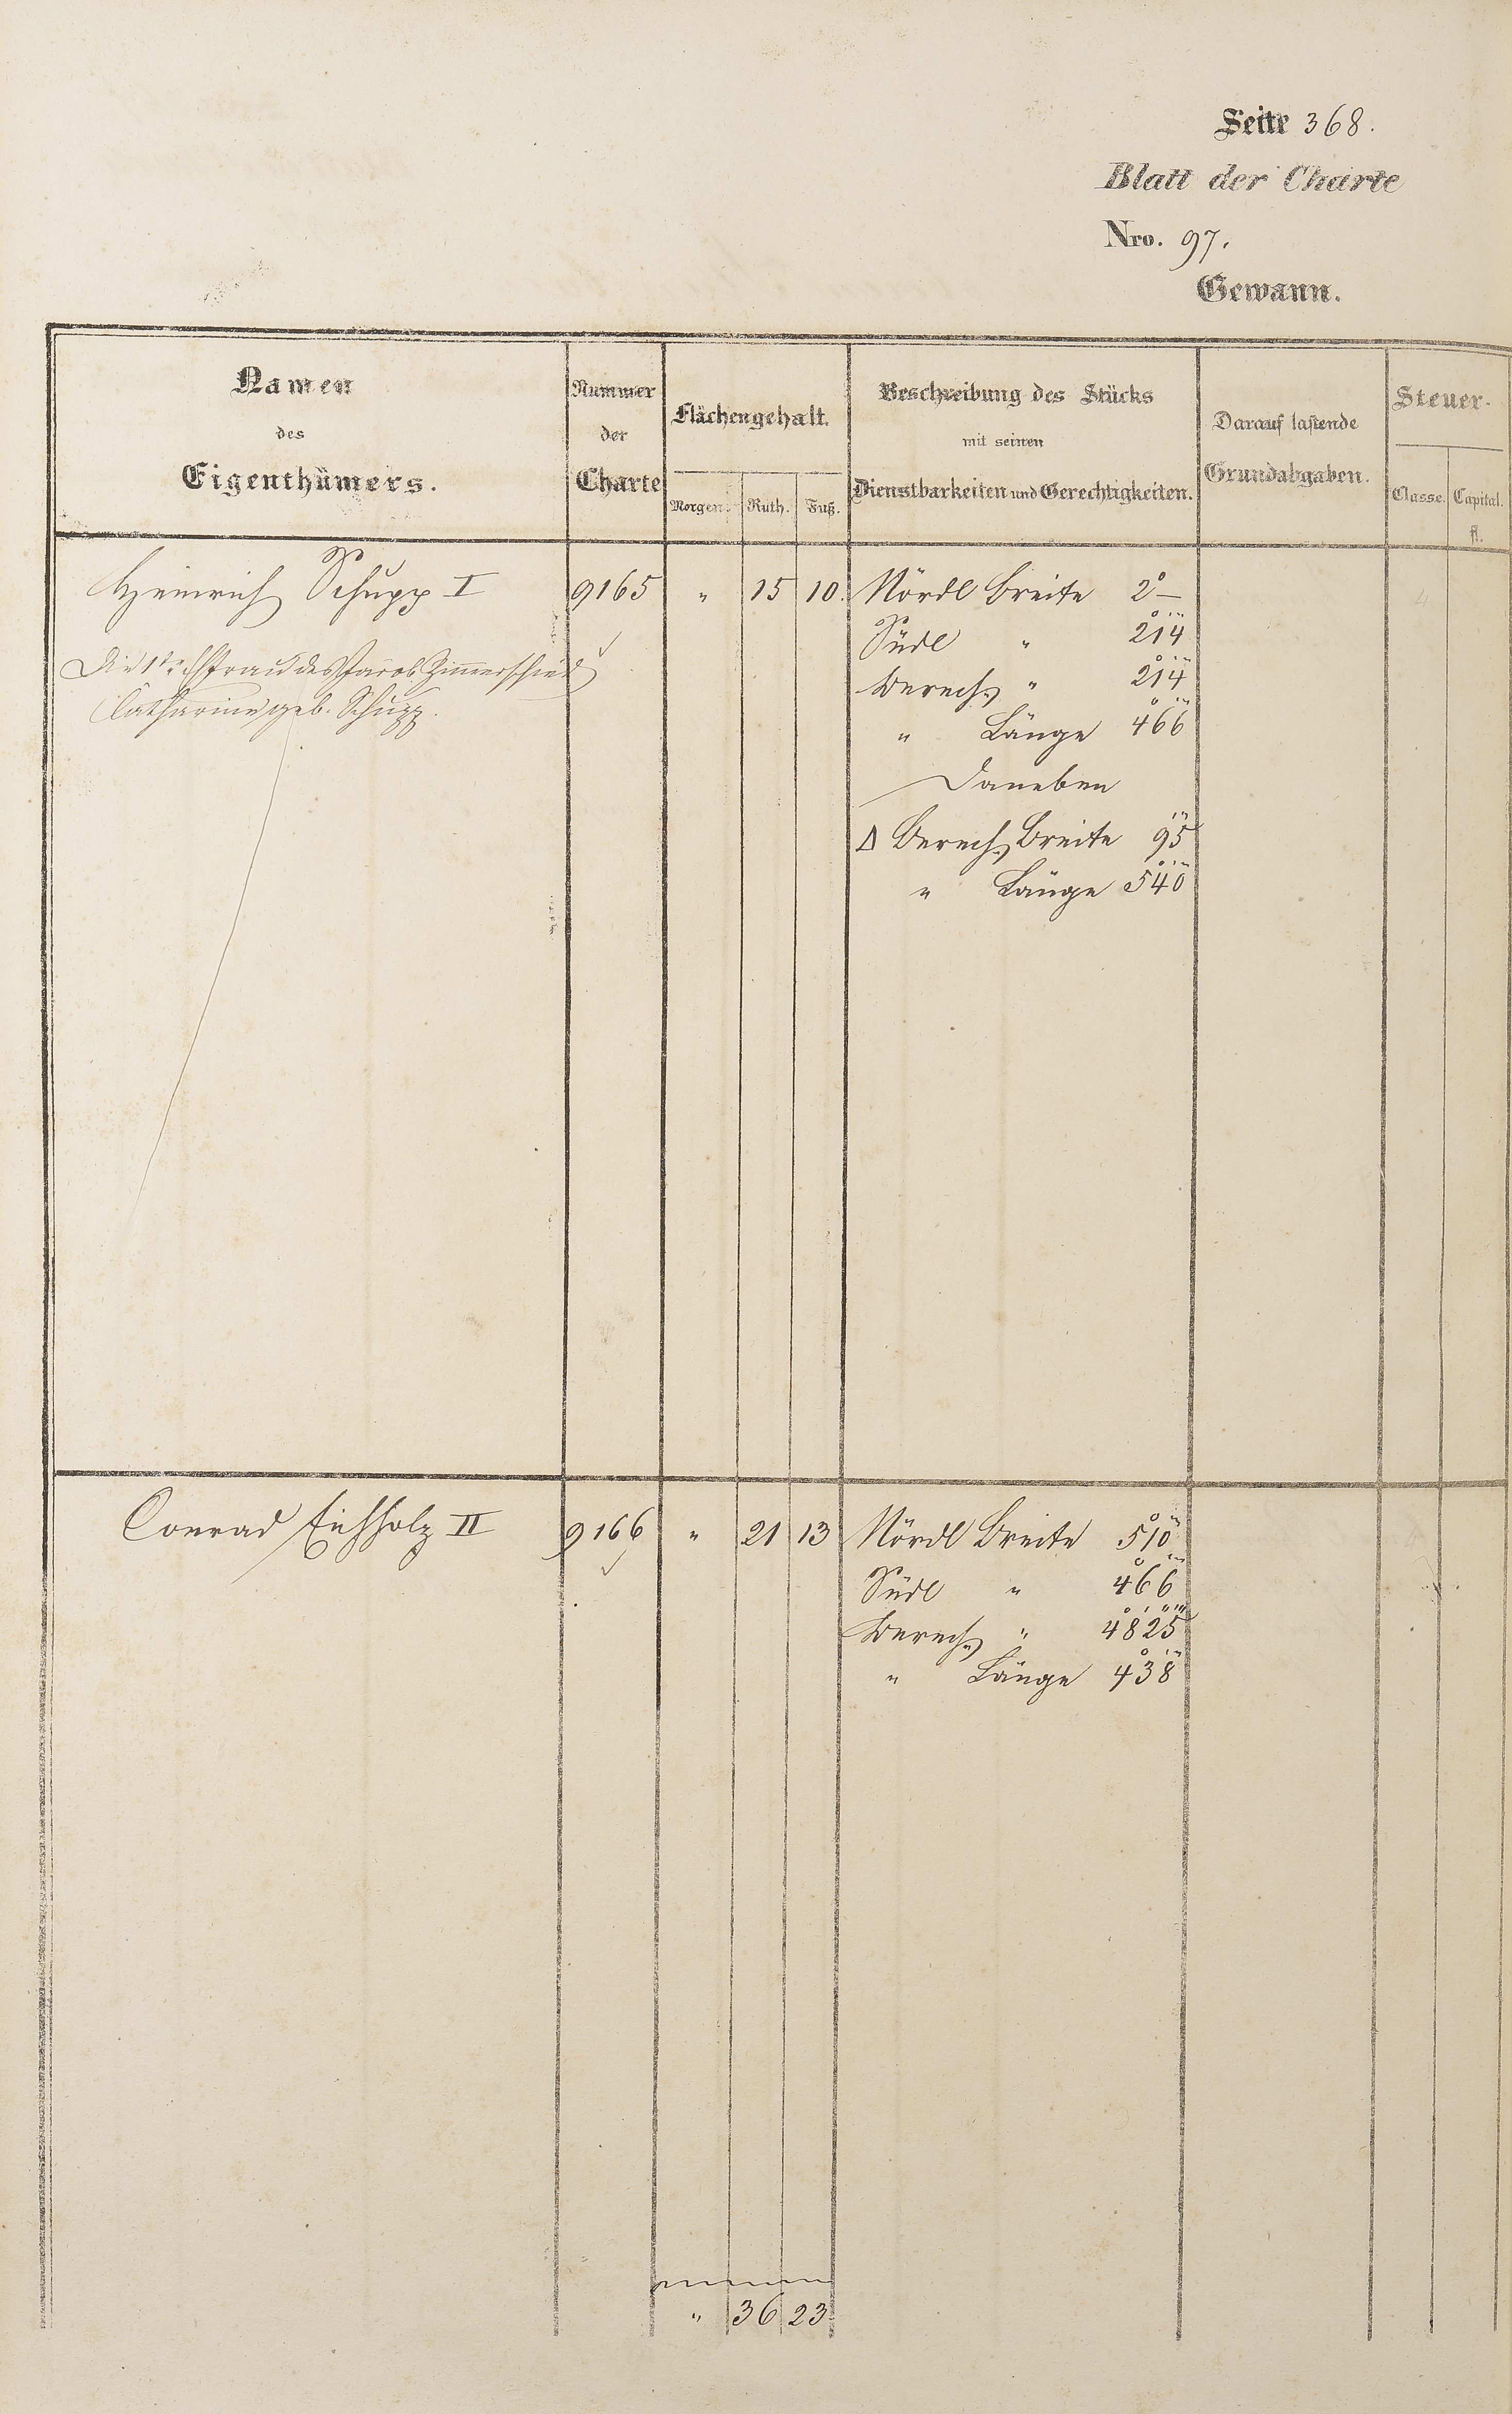 Seite 368.
Blatt der Charte
Nro. 97.
Gewann.
Namen
des
Eigenthümers.
Nummer
der
Charte
Flächengehalt.
Morgen. Ruth. Fuß.
Beschreibung des Stücks
mit seinen
Dienstbarkeiten und Gerechtigkeiten.
Darauf lastende
Grundabgaben.
Steuer-
Classe. Capital.
fl.
Heinrich Schupp I 9165 " 15 10. Nördl Breite 2° —
Südl " 214
Berech. " 214
" Länge 466
Daneben
Δ Berech. Breite 95
" Länge 540
Die 1te Ehfrau des Jacob Zimmerschied
Catharine geb. Schupp.
Conrad Eichholz II 9166 " 21 13 Nördl Breite 510
Südl " 466
Berech. " 4825
" Länge 438
" 36 23.